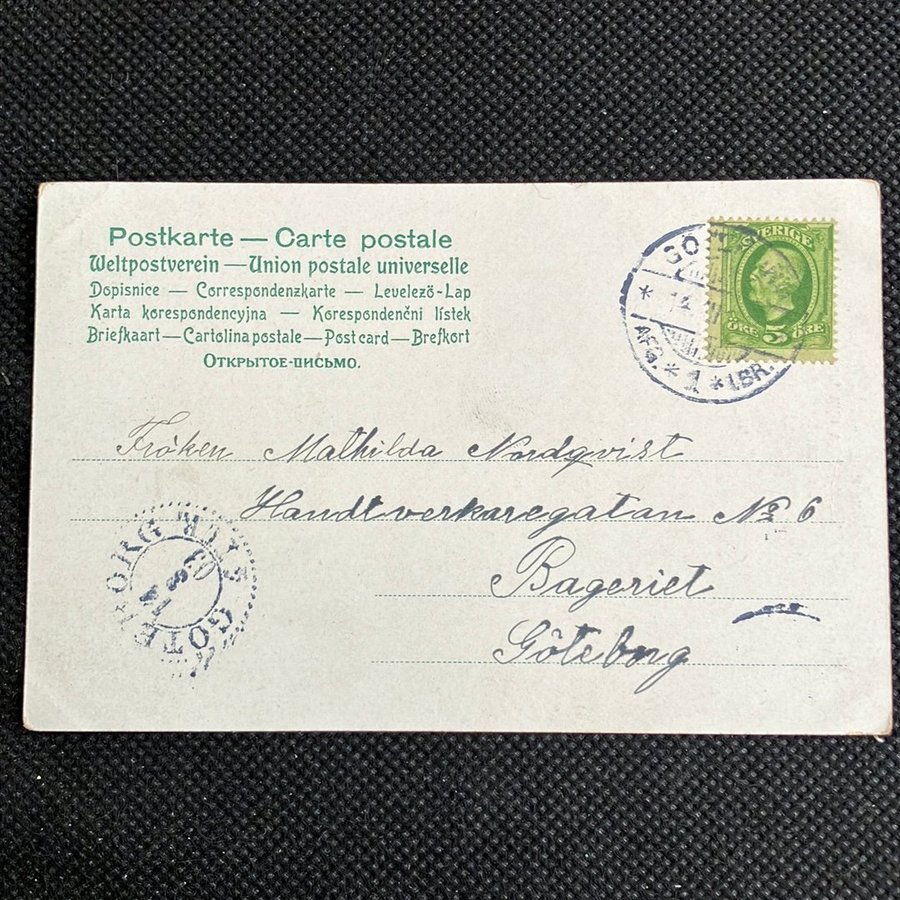 Postkarte — Carte postale
Weltpostverein — Union postale universelle
Dopisnice — Correspondenzkarte — Levelező-Lap
Karta korespondencyjna — Korespondenčni lístek
Briefkaart — Cartolina postale — Post card — Brefkort
Открытое-письмо.
SVERIGE
ÖRE 5 ÖRE
AFG. * 1 * LBR.
Fröken Mathilda Nordqvist
Handtverkaregatan No 6
Bageriet
Göteborg
GÖTEBORG